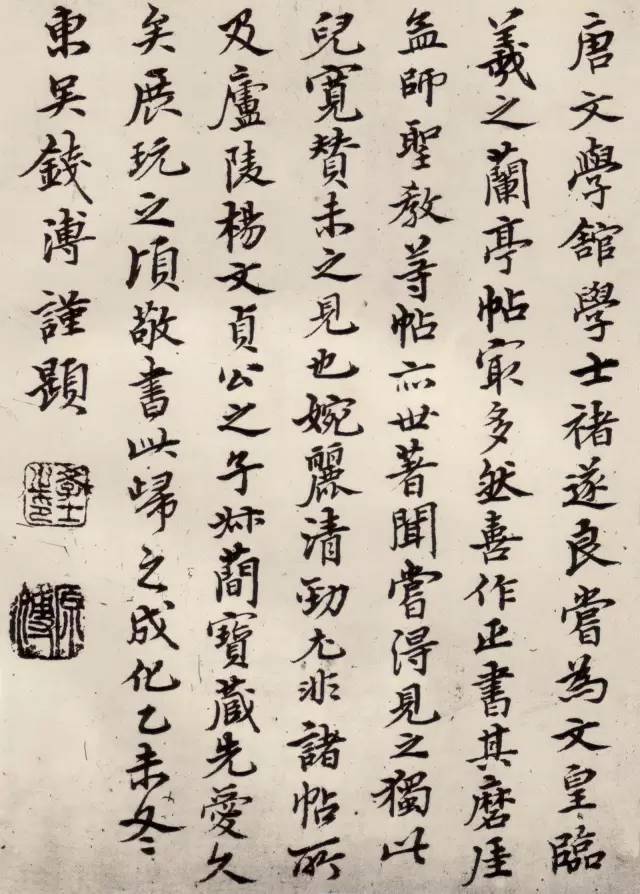 唐文學舘學士禇遂良嘗為文皇臨
羲之蘭亭帖㝡多然善作正書其磨厓
孟師聖教䓁帖亦世著聞嘗得見之獨此
兒寬贊未之見也婉麗清勁尤非諸帖所
及廬陵楊文貞公之子叔蕳寶蔵先愛久
矣展玩之頃敬書此歸之成化乙未冬
東吴錢溥謹題
學士
原溥